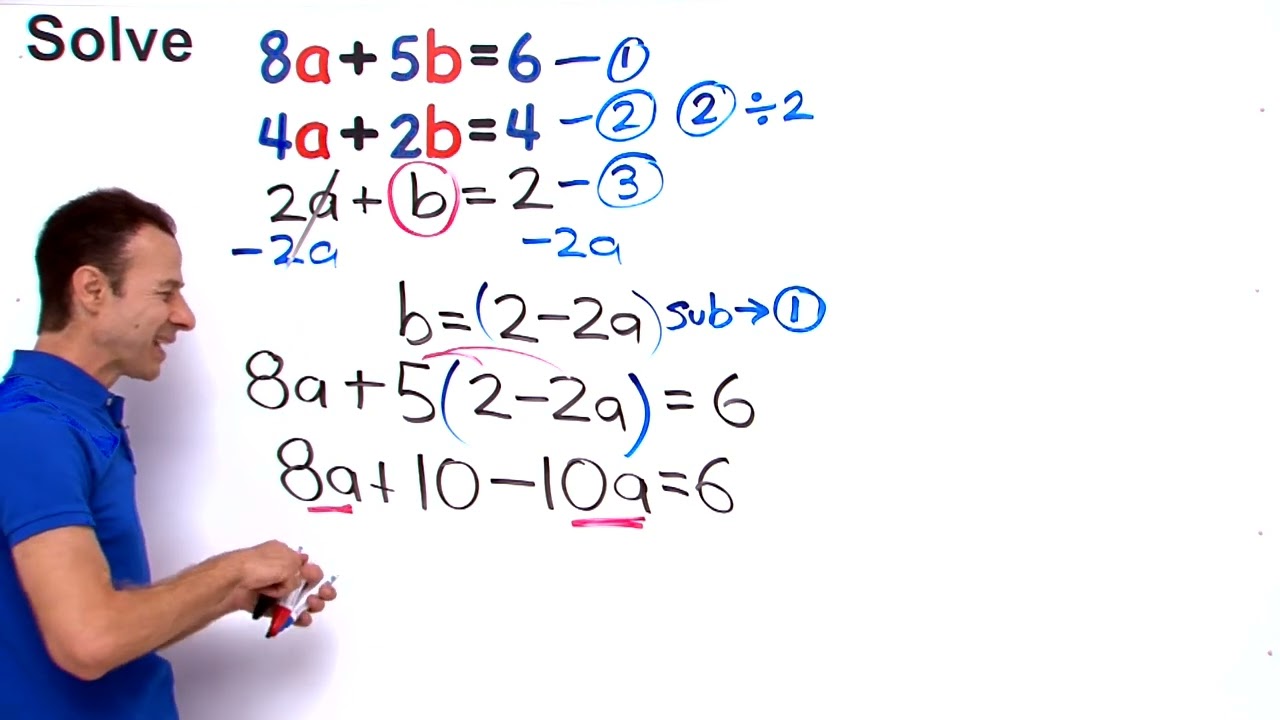 Solve
8a+5b=6 – ①
4a+2b=4 – ② ② ÷2
2a + b = 2 – ③
-2a -2a
b=(2-2a) sub→①
8a+5(2-2a) = 6
8a+10-10a=6